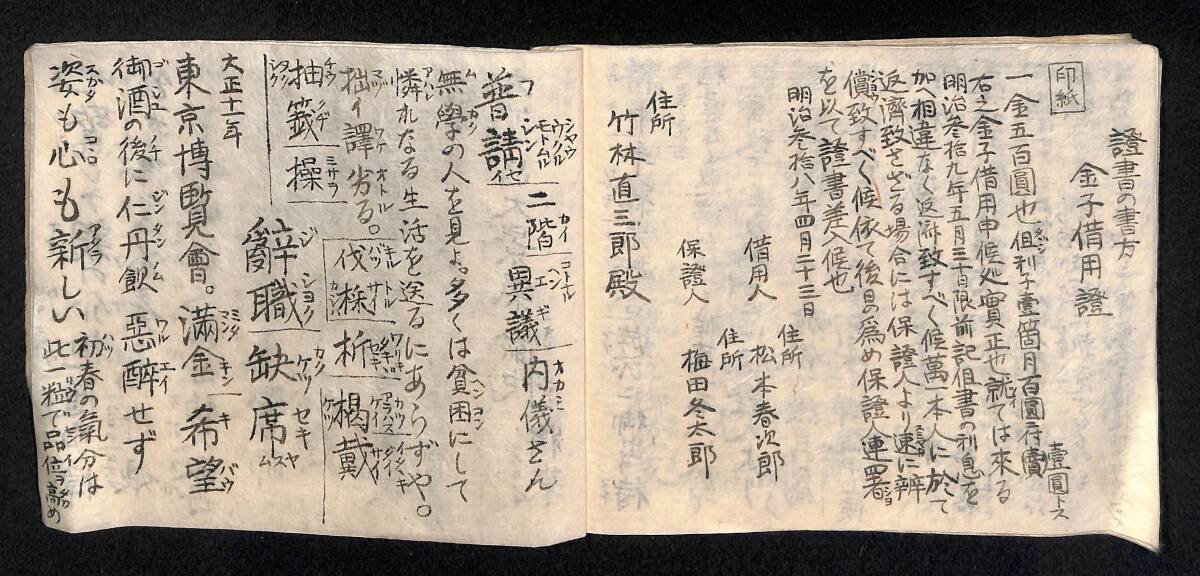 證書の書方
金子借用證
印紙
一金五百圓也但利子壹箇月百圓ニ付貮
壹圓トス
右之金子借用申候処實正也就ては来る
明治参拾九年五月三十日限前記但書の利息を
加へ相違なく返済致すべく候萬一本人に於て
返濟致さざる場合には保證人より速に辨
償致すべく候依て後日の爲め保證人連署
を以て證書差入候也
明治参拾八年四月二十三日
住所
借用人 松本春次郎
住所
保證人 梅田冬太郎
住所
竹林直三郎殿
普請 二階 異議 内儀さん
無學の人を見よ。多くは貧困にして
憐れなる生活を送るにあらずや。
拙イ譯劣る。 伐採 析 掲載
抽籤 操 辭職 缺席
大正十一年
東京博覧會。滿金 希望
御酒の後に仁丹飲 惡醉せず
姿も心も新しい 初春の氣分は
此一粒で品位ヲ高め